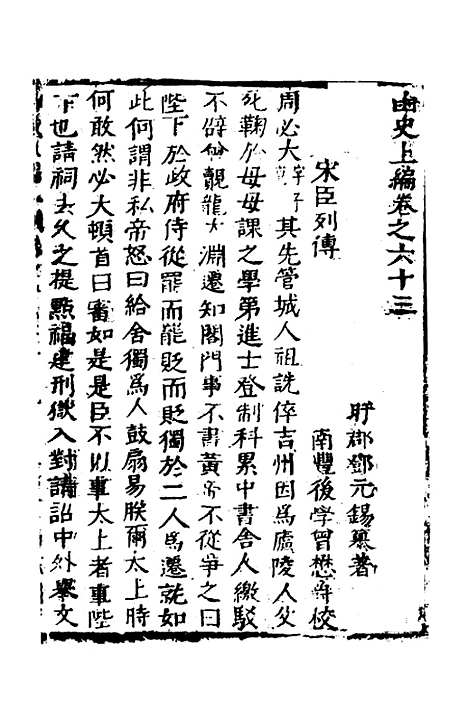 函史上編卷之六十三
盱郡鄧元錫纂著
南豐後學曾懋爵校
宋臣列傳
周必大 其先管城人祖詵倅吉州因爲廬陵人父
死鞠於母母課之學第進士登制科累中書舍人繳駁
不辟 覿龍大淵遷知閤門事不書黃 不從爭之曰
陛下於政府侍從罷而罷貶而貶獨於二人爲遷就如
此何謂非私帝怒曰給舍獨爲人鼓扇易朕爾太上時
何敢然必大頓首曰審如是是臣不以事太上者事陛
下也請祠去久之提點福建刑獄入對請詔中外舉文